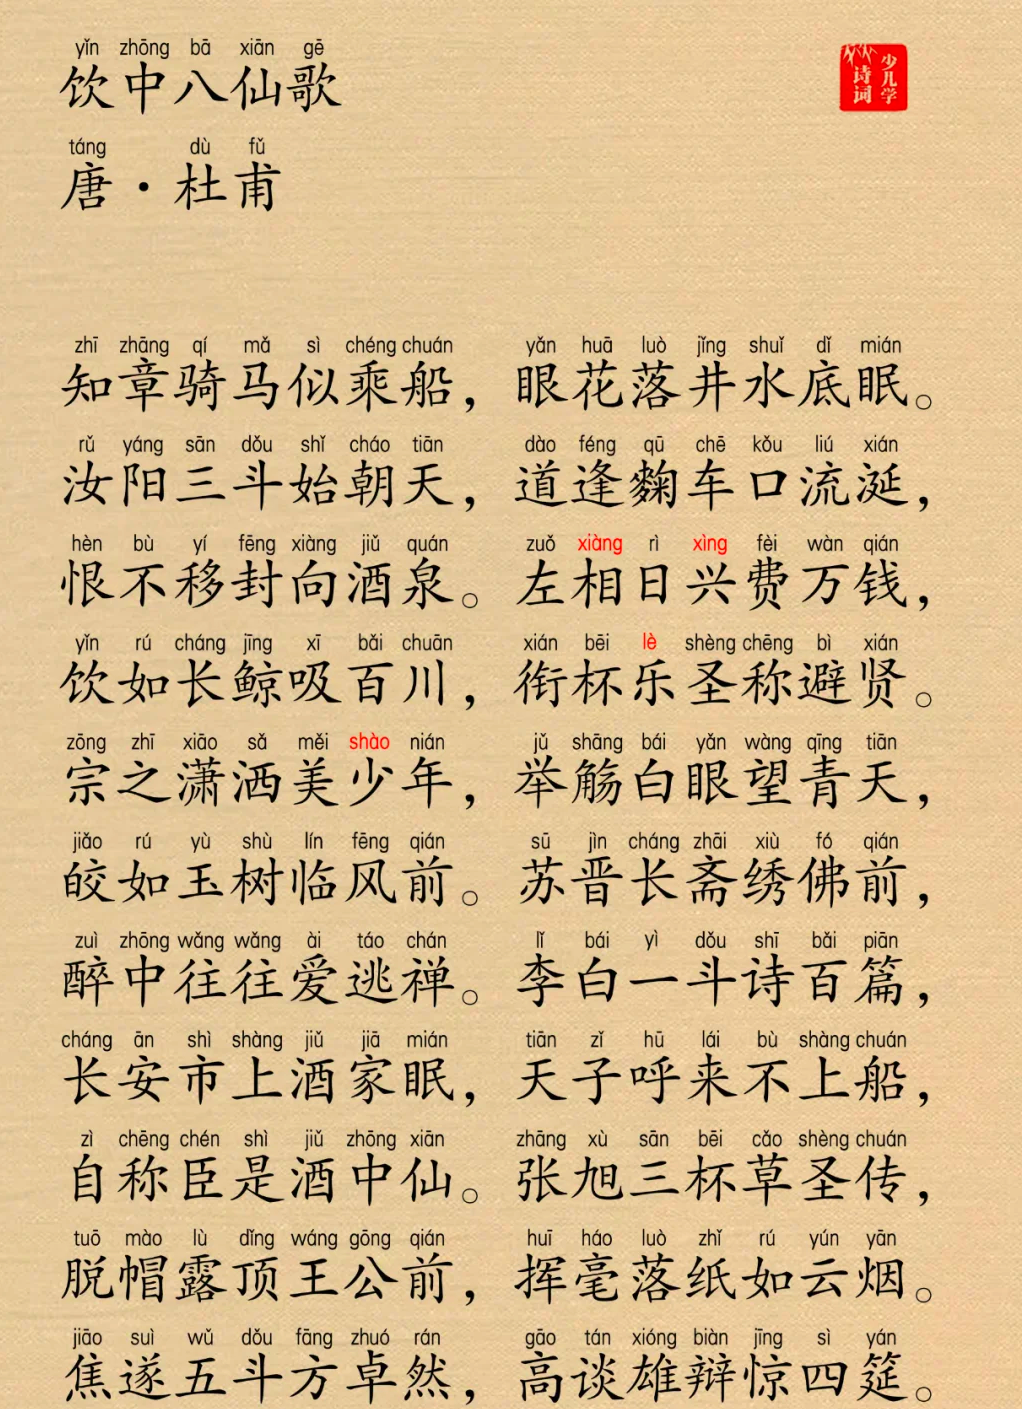 yǐn zhōng bā xiān gē
饮中八仙歌
少儿学
诗词
táng dù fǔ
唐·杜甫
zhī zhāng qí mǎ sì chéng chuán yǎn huā luò jǐng shuǐ dǐ mián
知章骑马似乘船，眼花落井水底眠。
rǔ yáng sān dǒu shǐ cháo tiān dào féng qū chē kǒu liú xián
汝阳三斗始朝天，道逢麴车口流涎，
hèn bù yí fēng xiàng jiǔ quán zuǒ xiàng rì xìng fèi wàn qián
恨不移封向酒泉。左相日兴费万钱，
yǐn rú cháng jīng xī bǎi chuān xián bēi lè shèng chēng bì xián
饮如长鲸吸百川，衔杯乐圣称避贤。
zōng zhī xiāo sǎ měi shào nián jǔ shāng bái yǎn wàng qīng tiān
宗之潇洒美少年，举觞白眼望青天，
jiǎo rú yù shù lín fēng qián sū jìn cháng zhāi xiù fó qián
皎如玉树临风前。苏晋长斋绣佛前，
zuì zhōng wǎng wǎng ài táo chán lǐ bái yì dǒu shī bǎi piān
醉中往往爱逃禅。李白一斗诗百篇，
cháng ān shì shàng jiǔ jiā mián tiān zǐ hū lái bù shàng chuán
长安市上酒家眠，天子呼来不上船，
zì chēng chén shì jiǔ zhōng xiān zhāng xù sān bēi cǎo shèng chuán
自称臣是酒中仙。张旭三杯草圣传，
tuō mào lù dǐng wáng gōng qián huī háo luò zhǐ rú yún yān
脱帽露顶王公前，挥毫落纸如云烟。
jiāo suì wǔ dǒu fāng zhuó rán gāo tán xióng biàn jīng sì yán
焦遂五斗方卓然，高谈雄辩惊四筵。